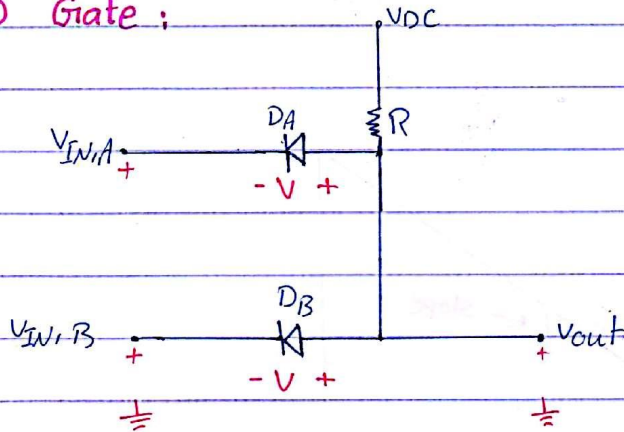 Gate :
VDC
R
DA
VIN,A
+
- V +
DB
VIN, B
+
- V +
Vout
+